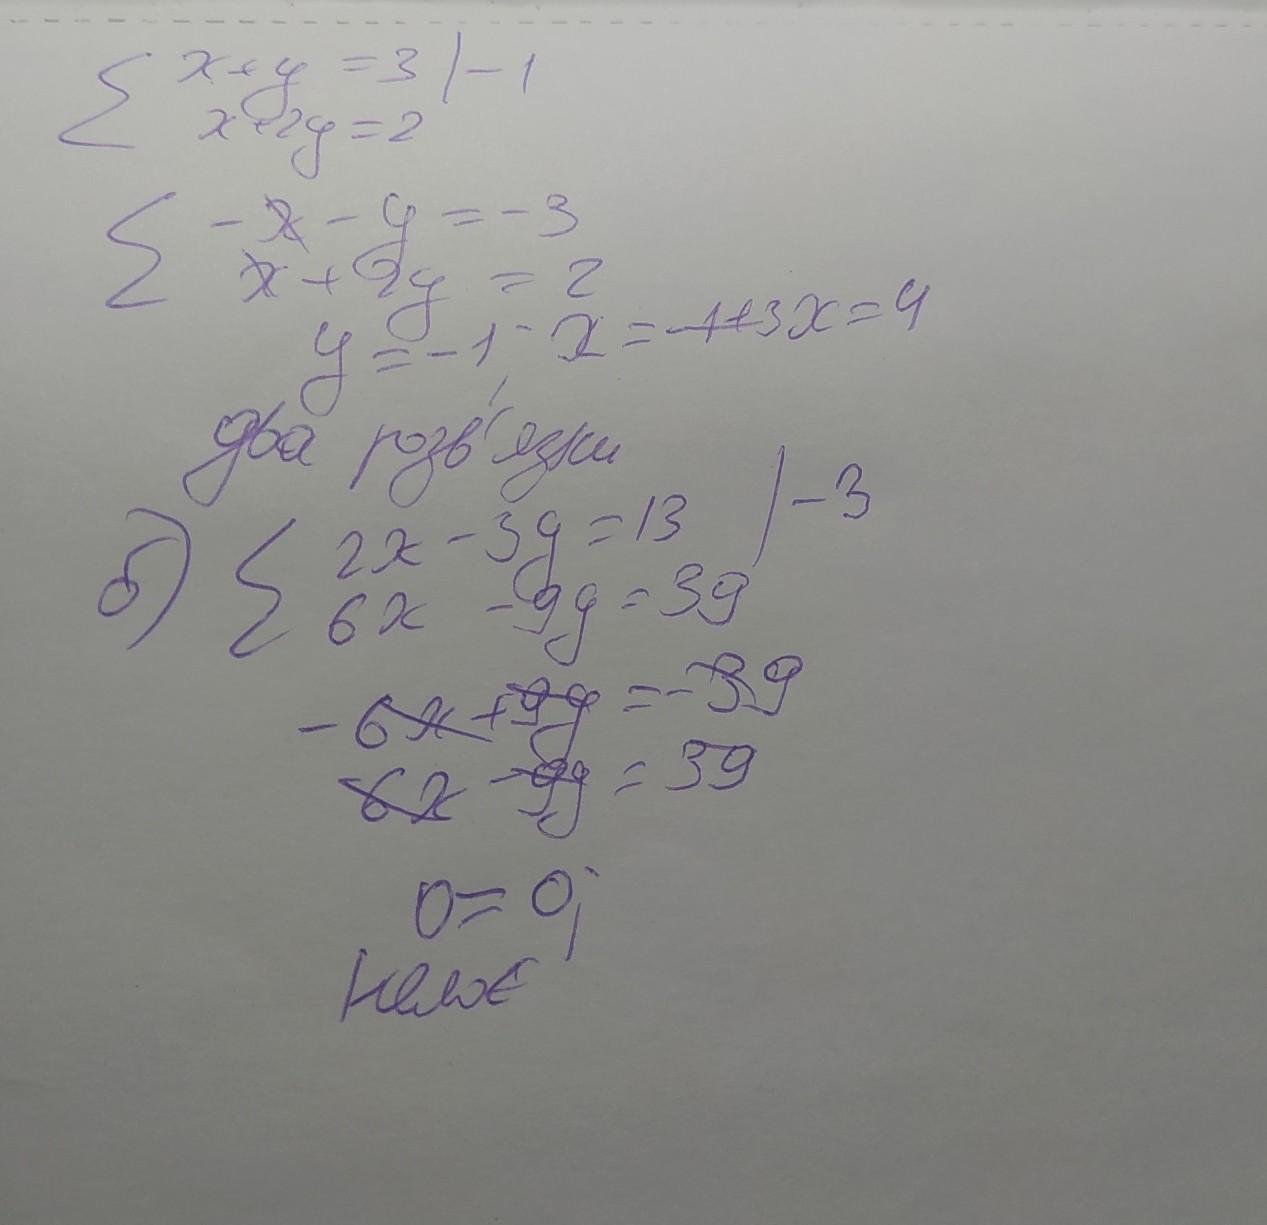 { x+y = 3 | -1
x+2y = 2
{ -x - y = -3
x + 2y = 2
y = -1; x = -1+3 x = 4
два розв'язки
б) { 2x - 3y = 13 | -3
6x - 9y = 39
-6x + 9y = -39
6x - 9y = 39
0 = 0;
немає